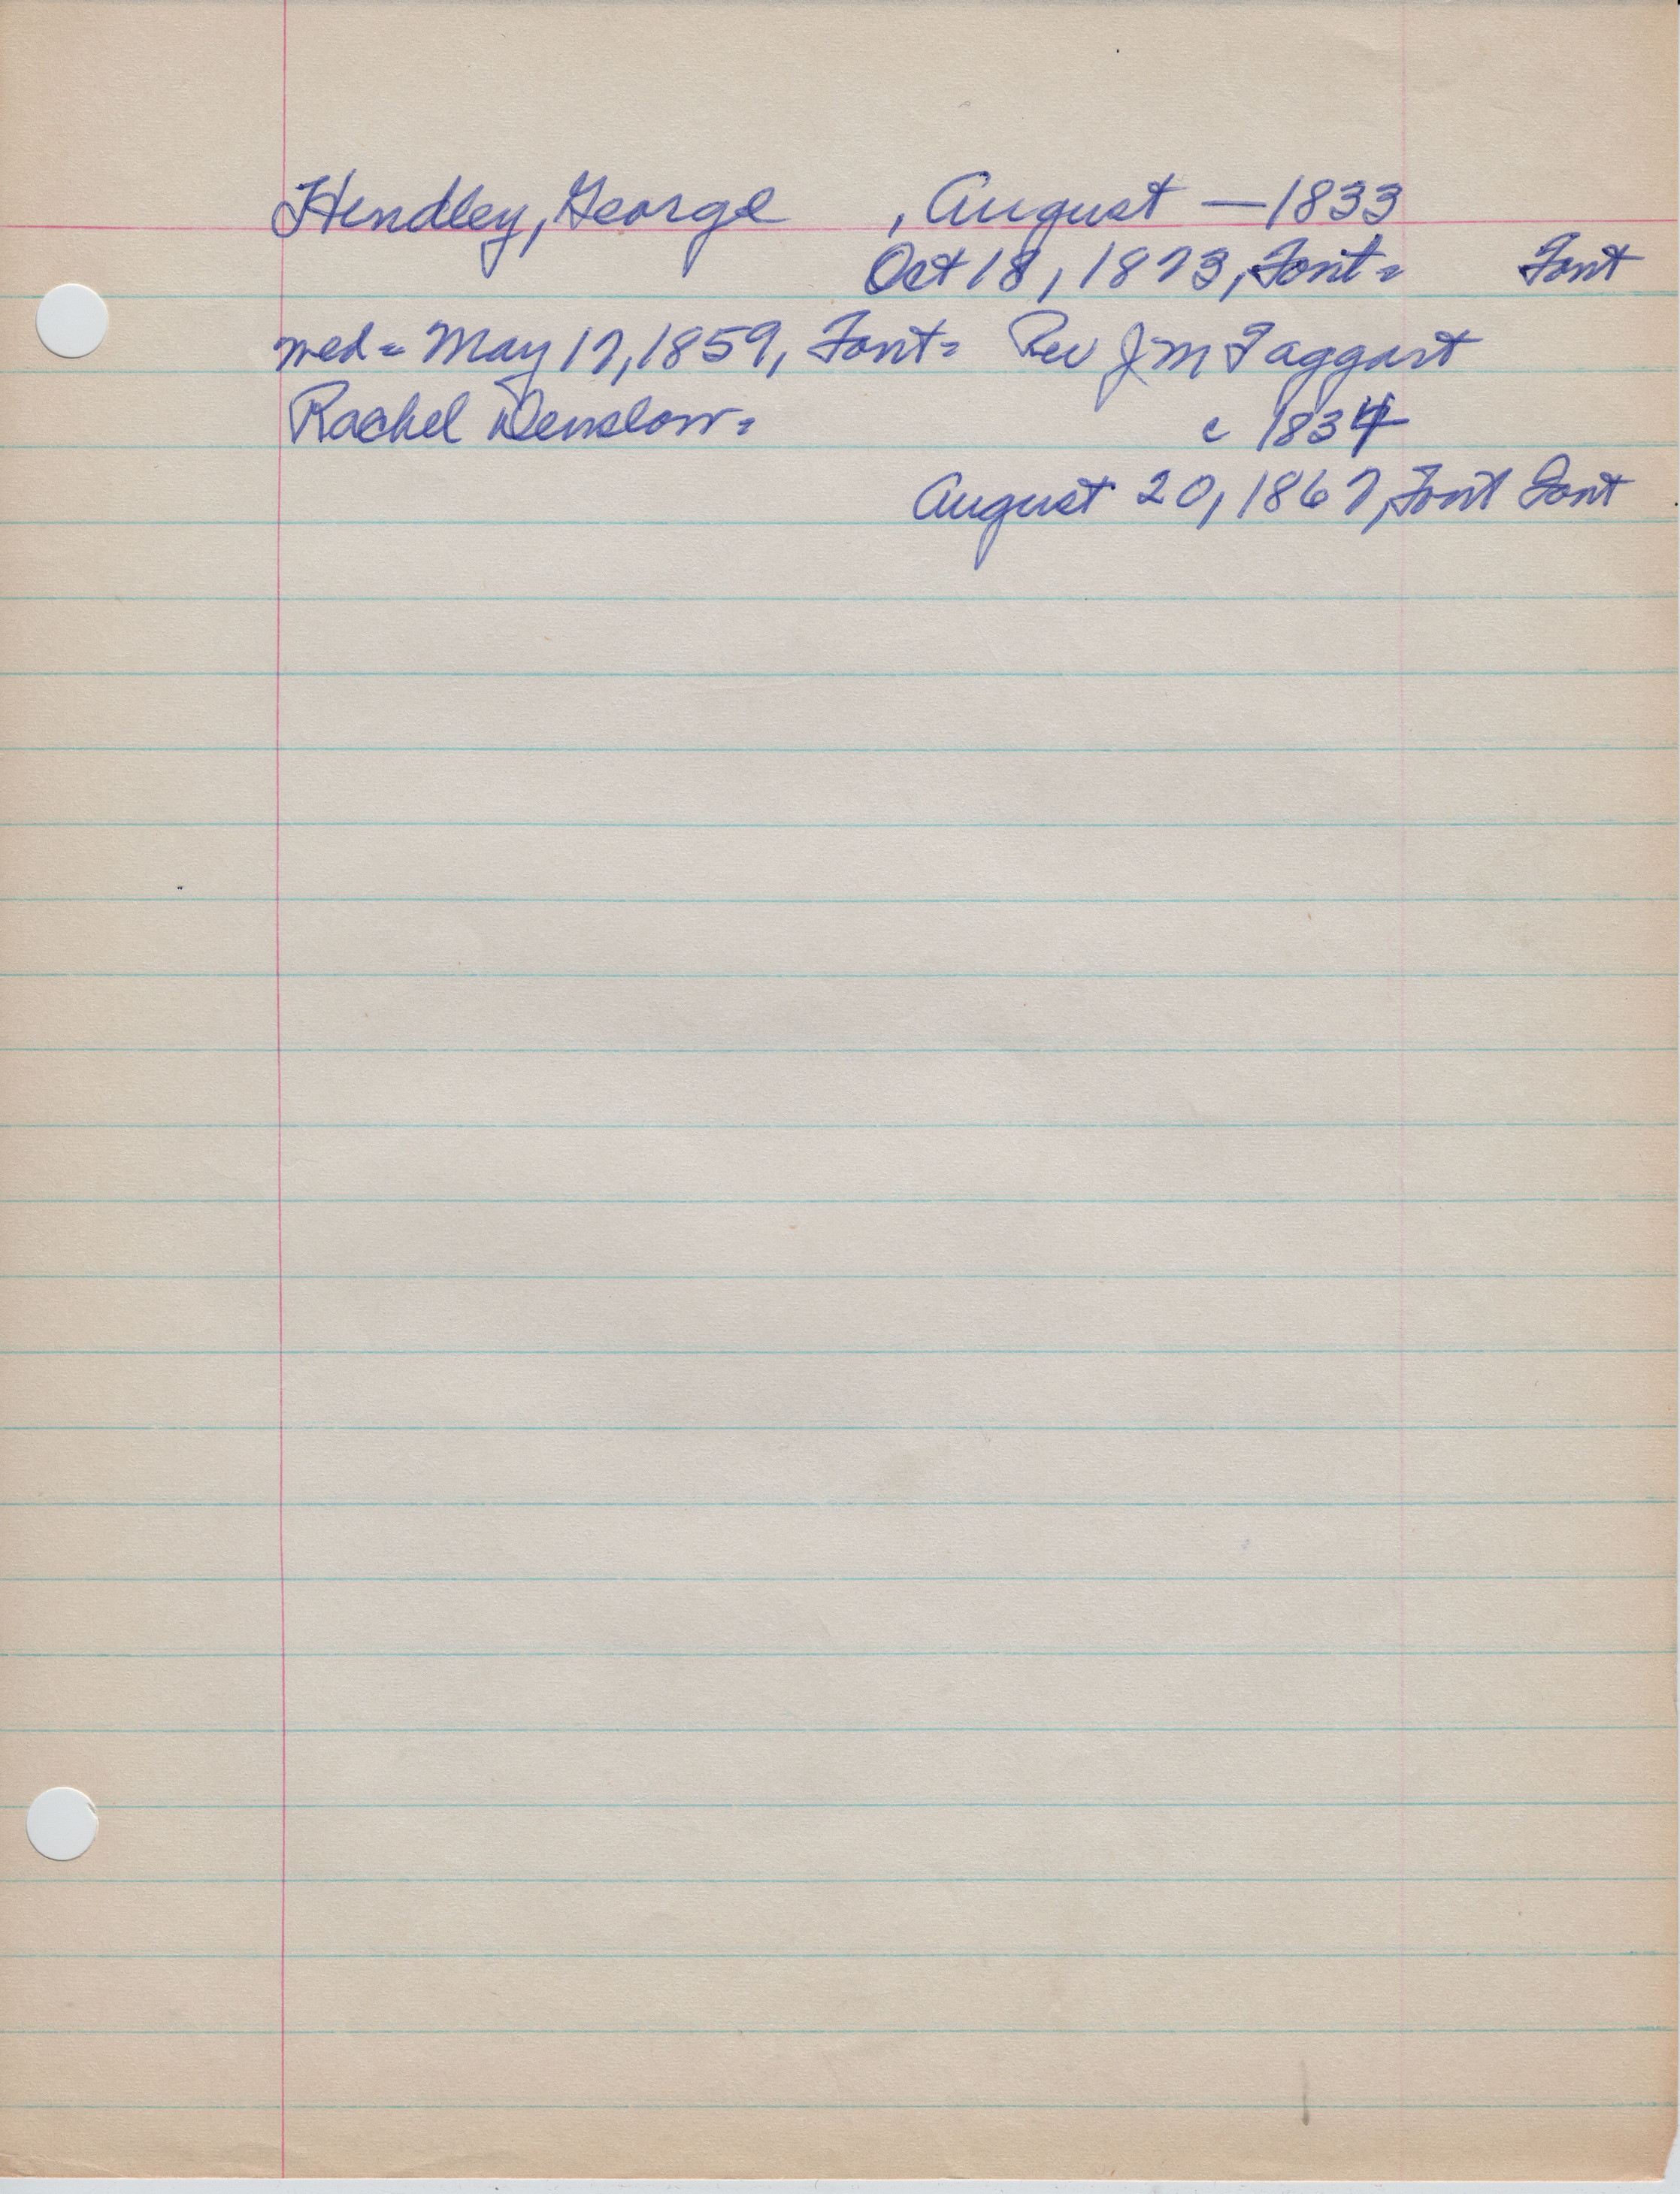 Hendley, George , August — 1833
Oct 18, 1873, Font= Font
med= May 17, 1859, Font= Rev J M Taggart
Rachel Denslow= c 1834
August 20, 1867, Font Font